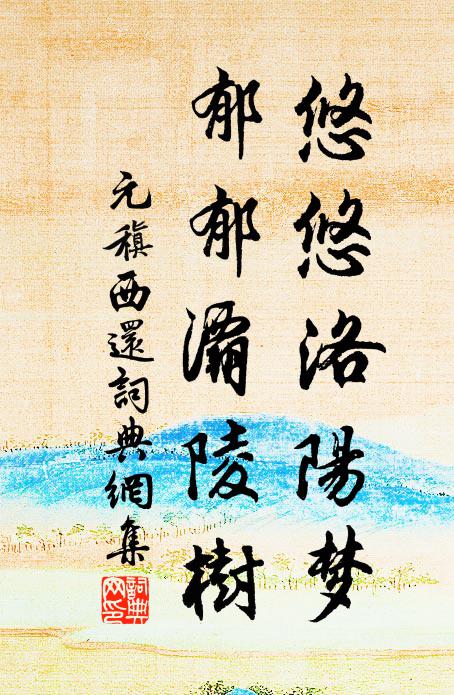 悠悠洛陽梦
郁郁灞陵樹
元稹西還詞典網集
詞典